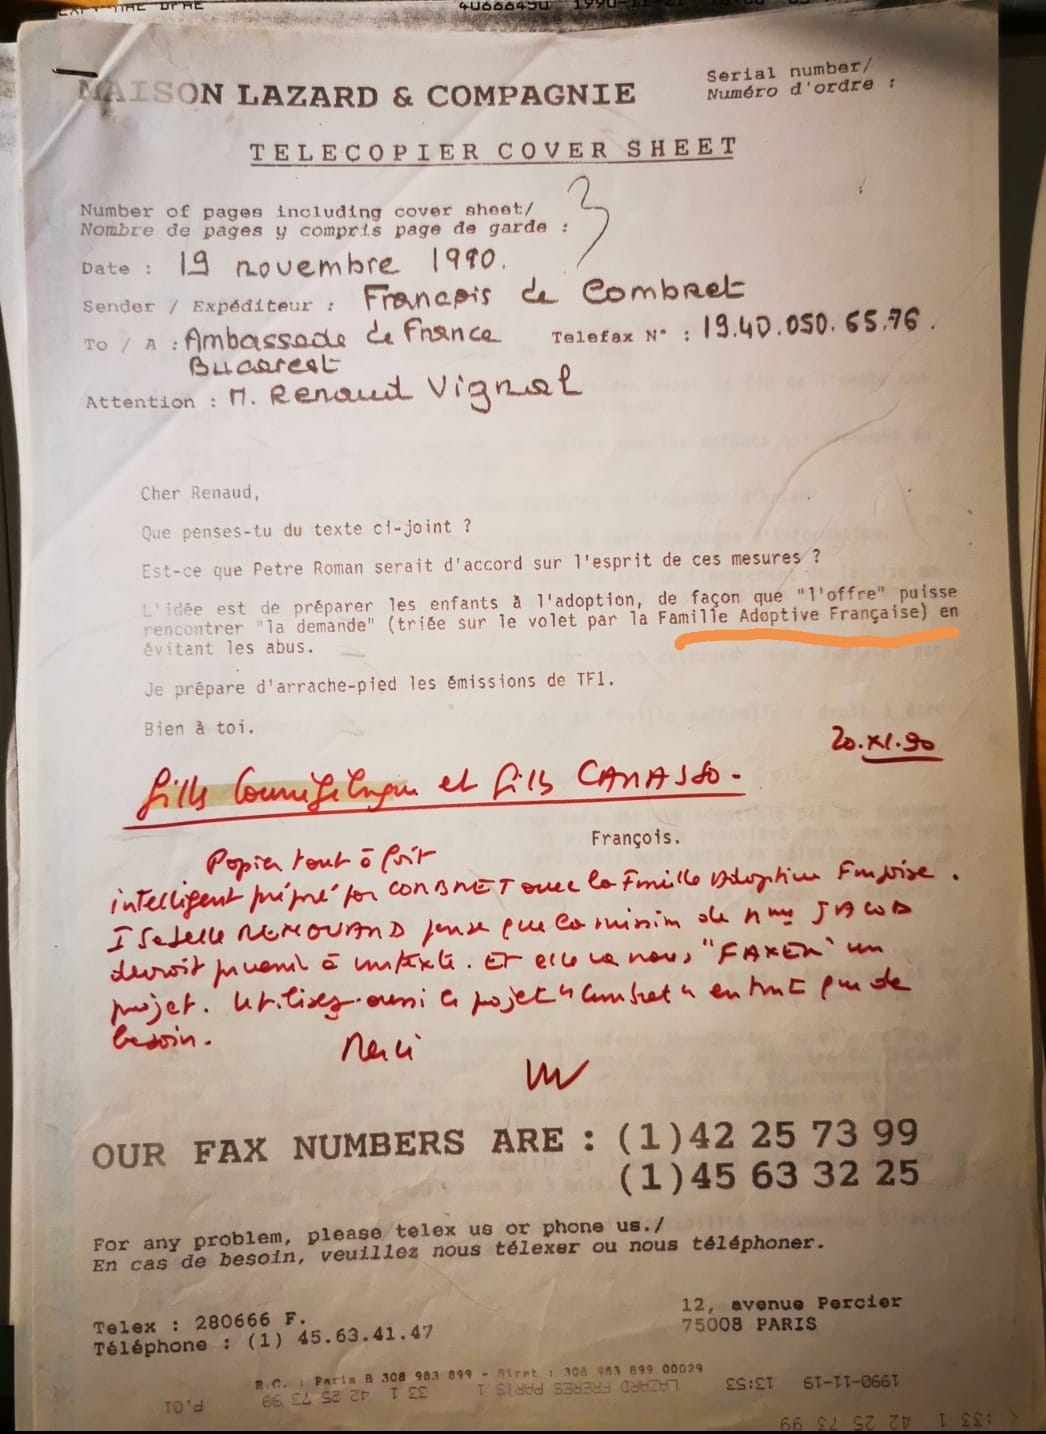 40666450 1990-11-21
MAISON LAZARD & COMPAGNIE
Serial number/
Numéro d'ordre :
TELECOPIER COVER SHEET
Number of pages including cover sheet/
Nombre de pages y compris page de garde : 3
Date : 19 novembre 1990.
Sender / Expéditeur : François de Combret
To / A : Ambassade de France Telefax N° : 19.40.050.65.76.
Bucarest
Attention : M. Renaud Vignal
Cher Renaud,
Que penses-tu du texte ci-joint ?
Est-ce que Petre Roman serait d'accord sur l'esprit de ces mesures ?
L'idée est de préparer les enfants à l'adoption, de façon que "l'offre" puisse
rencontrer "la demande" (triée sur le volet par la Famille Adoptive Française) en
évitant les abus.
Je prépare d'arrache-pied les émissions de TF1.
Bien à toi.
20.XI.90
et CANASSO.
François.
Papier tout à fait
intelligent préparé par COMBRET avec la Famille Adoptive Française.
Isabelle RENOUARD pense que la mission de Mme JACOB
devrait parvenir à un texte. Et elle va nous "FAXER" un
projet. Utilisez aussi le projet "Combret" en tant que de
besoin.
Merci
OUR FAX NUMBERS ARE : (1)42 25 73 99
(1)45 63 32 25
For any problem, please telex us or phone us./
En cas de besoin, veuillez nous télexer ou nous téléphoner.
Telex : 280666 F.
Téléphone : (1) 45.63.41.47
12, avenue Percier
75008 PARIS
R.C. : Paris B 308 983 899 - Siret : 308 983 899 00029
1990-11-19 13:53 LAZARD FRERES PARIS 1 33 1 42 25 73 99 P.01
33 1 42 25 73 99